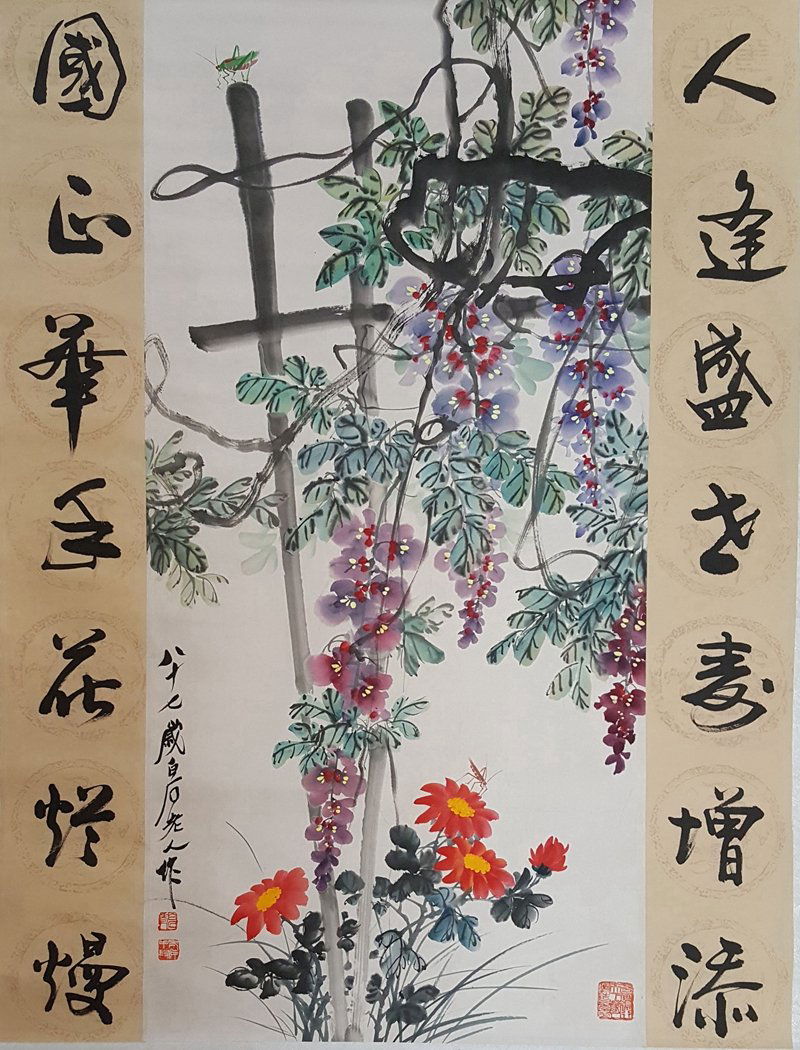 人逢盛世寿增添
國正華年花烂熳
八十七歲白石老人作